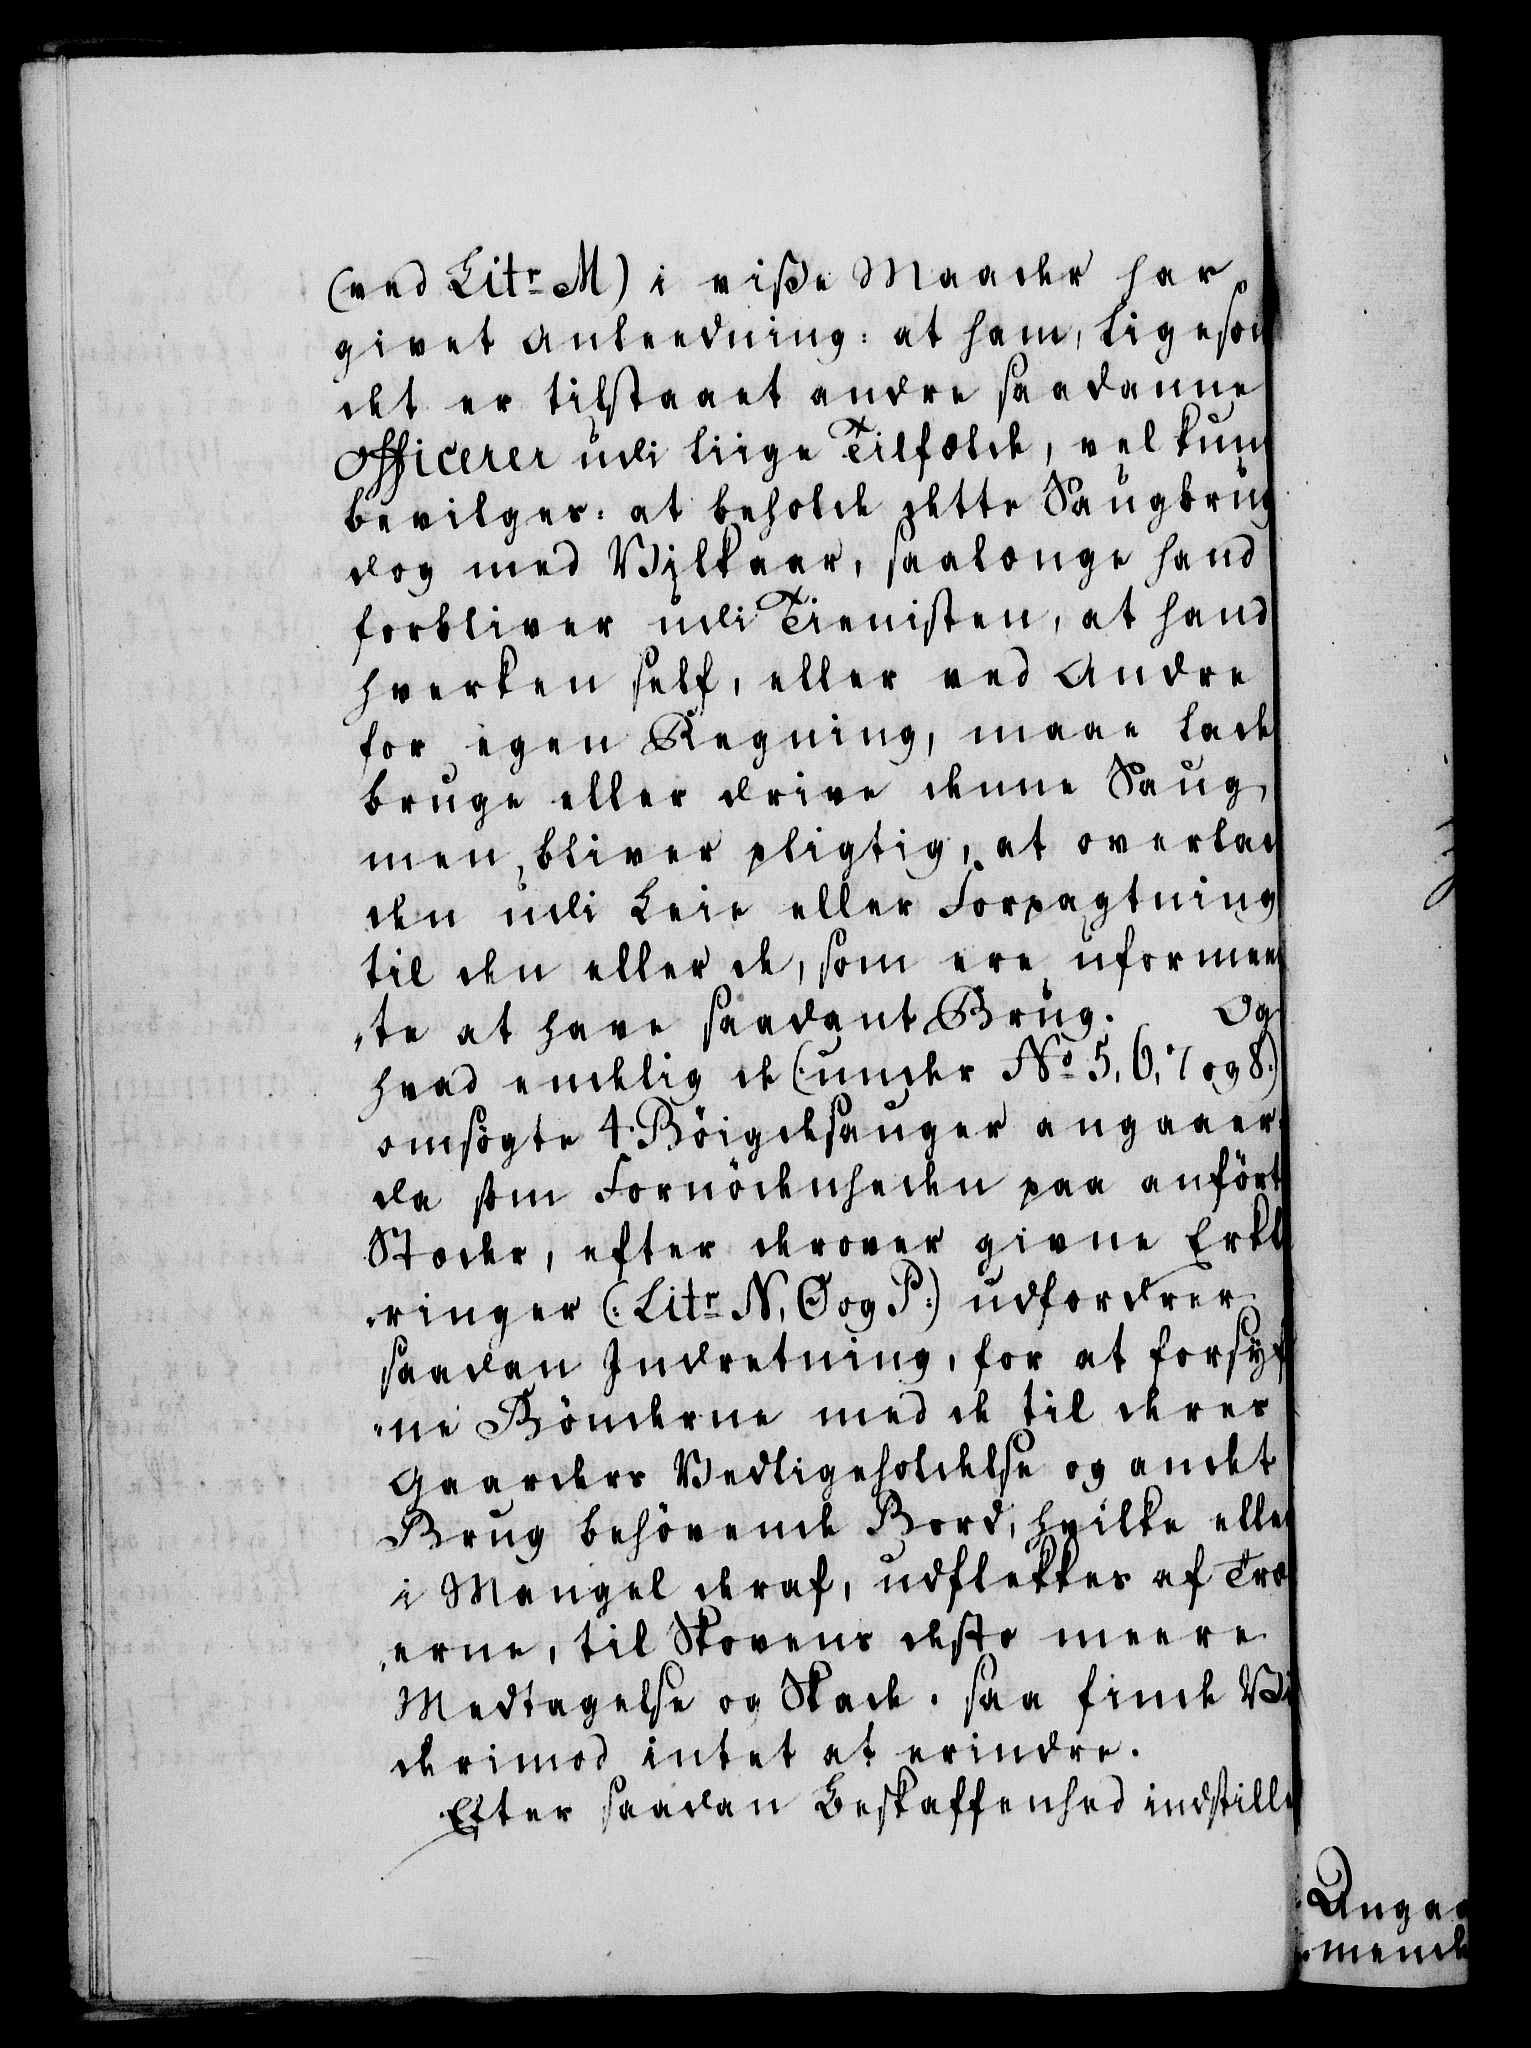 (ved Litr M) i visse Maader har
givet Anleedning: at ham, ligesom
det er tilstaaet andre saadanne
Officerer udi liige Tilfælde, vel kun
bevilges: at beholde dette Saugbrug
dog med Vilkaar, saalænge hand
forbliver udi Tienisten, at hand
hverken self, eller ved Andre
for egen Regning, maae lade
bruge eller drive denne Saug,
men bliver pligtig, at overlad
den udi Leie eller Forpagtning
til den eller de, som ere uformeen
„te at have saadant Brug. Og
hvad endelig de (: under No 5, 6, 7 og 8:)
omsøgte 4. Bøigdesauger angaaer:
da som Fornødenheden paa anført
Stæder, efter derover givne Erklæ
„ringer (: Litr N, O og P:) udfordrer
saadan Indretning, for at forsÿ
„ne Bønderne med de til deres
Gaarders Vedligeholdelse og andet
Brug behøvende Bord, hvilke eller
i Mangel deraf, udflekkes af Træ
„erne, til Skovens desto meere
Medtagelse og Skade. saa finde Vi
derimod intet at erindre.
Efter saadan Beskaffenhed indstille
Angaa
„mende